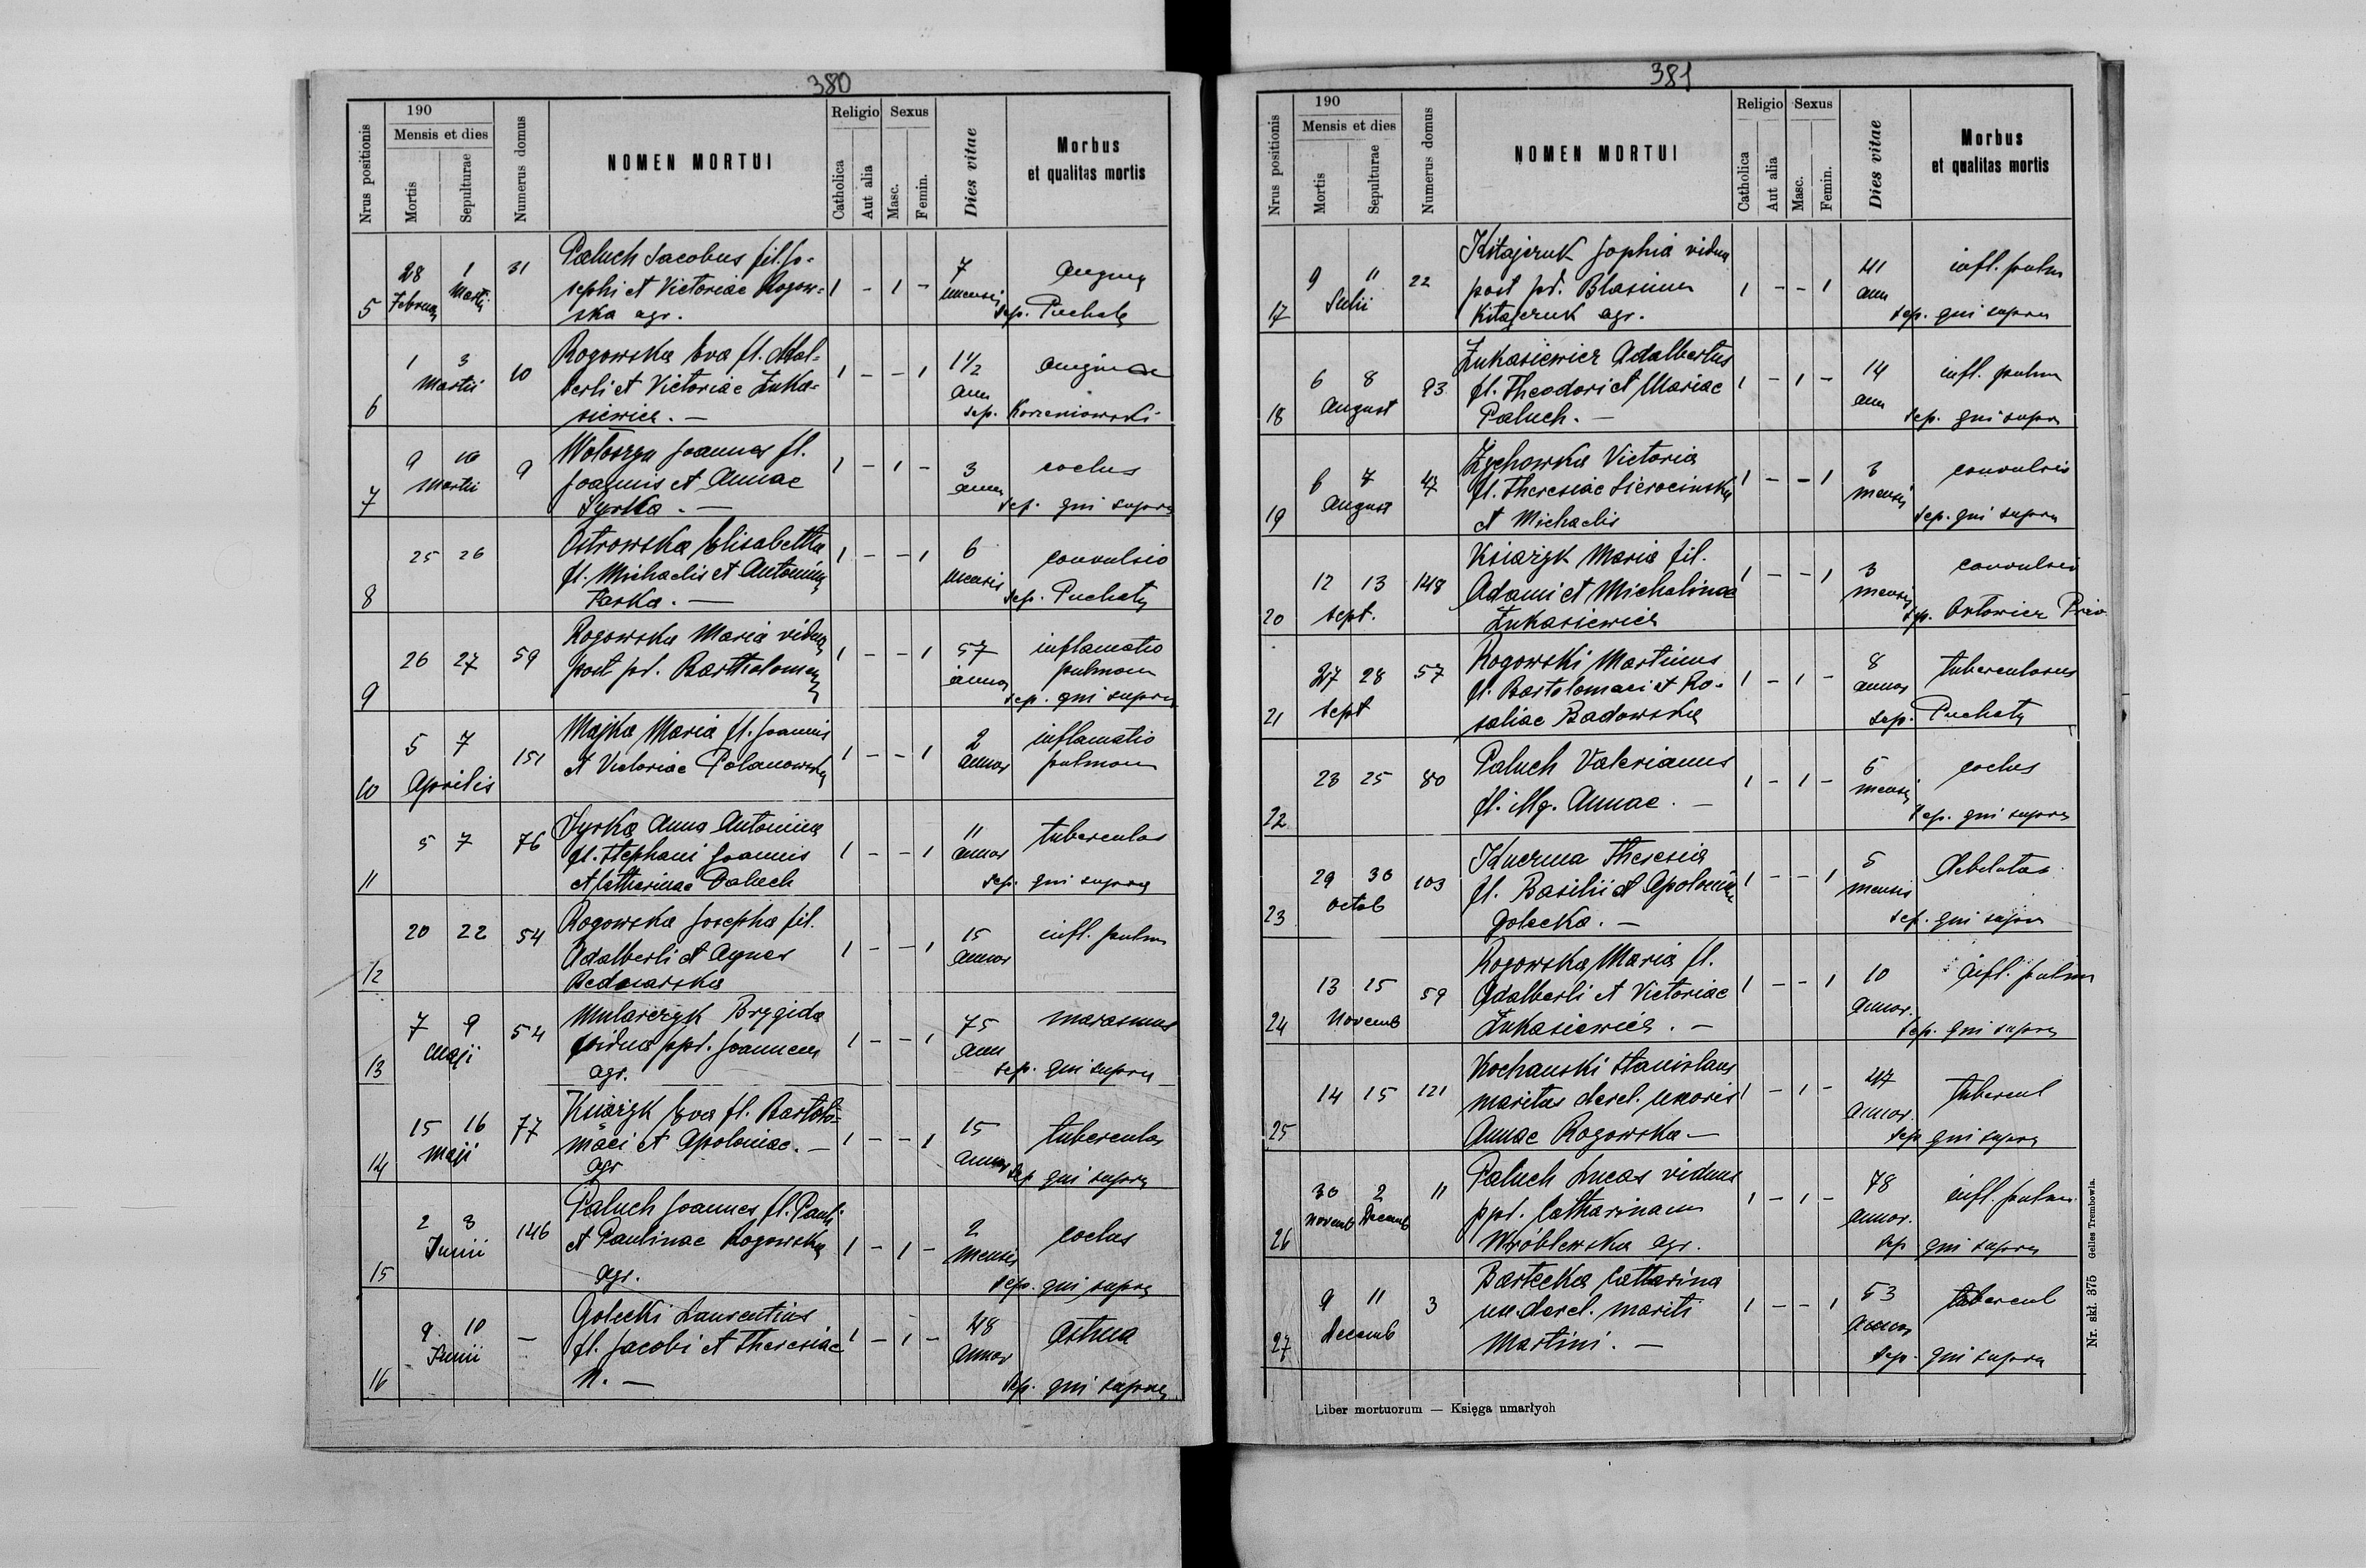 380
Nrus positionis
190
Mensis et dies
Mortis
Sepulturae
Numerus domus
NOMEN MORTUI
Religio
Catholica
Aut alia
Sexus
Masc.
Femin.
Dies vitae
Morbus
et qualitas mortis
5
28 1 31
Martii
Paluch Jacobus fil. Jo-
sephi et Victoriae Rogow-
ska agr.
1 - 1 -
7
mensis
sep.
6
1 3 10
Martii
Rogowska Eva fl. Adal-
berti et Victoriae Łuka-
siewicz. —
1 - - 1
1 1/2
ann
angina
sep. Korzeniowski
7
9 10 9
Martii
Wołoszyn Joannes fl.
Joannis et Annae
Syrka. —
1 - 1 -
3
annos
coclus
sep. qui supra
8
25 26
Ostrowska Elisabetha
fl. Michaelis et Antoninae
1 - - 1
6
mensis
convulsio
sep. Puchaty
9
26 27 59
Rogowska Maria vidua
post pd. Bartholomeum
1 - - 1
57
annos
inflamatio
pulmon
sep. qui supra
10
5 7 151
Aprilis
Majka Maria fl. Joannis
et Victoriae Polanowska
1 - - 1
2
annos
inflamatio
pulmon
11
5 7 76
Syrka Anna Antonina
fl. Stephani Joannis
et Catherinae Paluch
1 - - 1
11
annos
tuberculos
sep. qui supra
12
20 22 54
Rogowska Josepha fil.
Adalberti et Agnes
Bednarska
1 - - 1
15
annos
infl. pulm
13
7 9 54
Maji
Mularczyk Brygida
vidua ppd. Joannem
agr.
1 - - 1
75
ann
marasmus
sep. qui supra
14
15 16 77
Maji
Książyk Eva fl. Bartolo-
maei et Apoloniae. —
agr
1 - - 1
15
annos
tuberculos
sep qui supra
15
2 3 146
Junii
Paluch Joannes fl. Pauli
et Paulinae Rogowska
agr.
1 - 1 -
2
mensis
coclus
sep. qui supra
16
9. 10 —
Junii
Gołecki Laurentius
fl. Jacobi et Theresiae
N. —
1 - 1 -
48
annos
asthma
sep. qui supra
381
Nrus positionis
190
Mensis et dies
Mortis
Sepulturae
Numerus domus
NOMEN MORTUI
Religio
Catholica
Aut alia
Sexus
Masc.
Femin.
Dies vitae
Morbus
et qualitas mortis
17
9 11 22
Julii
Kitajczuk Sophia vidua
post pd. Blasium
Kitajczuk agr.
1 - - 1
41
ann
infl. pulm
sep. qui supra
18
6 8 93
August
Łukasiewicz Adalbertus
fl. Theodori et Mariae
Paluch. —
1 - 1 -
14
ann
infl. pulm
sep. qui supra
19
6 7 47
August
Victoria
fl. Theresiae Sierocinska
et Michaelis
1 - - 1
3
mensis
convulsio
sep. qui supra
20
12 13 148
Sept.
Książyk Maria fil.
Adami et Michalinae
Łukasiewicz
1 - - 1
3
mensis
convulsio
sep.
21
27 28 57
Sept
Rogowski Martinus
fl. Bartolomaei et Ro-
saliae Badowska
1 - 1 -
8
annos
tuberculosus
sep. Puchaty
22
23 25 80
Paluch Valerianus
fl. illg. Annae. —
1 - 1 -
6
mensis
coclus
sep. qui supra
23
29 30 103
Octob
Theresia
fl. Basilii et Apoloniae
Gołecka. —
1 - - 1
5
mensis
debilitas
sep. qui supra
24
13 15 59
Novemb
Rogowska Maria fl.
Adalberti et Victoriae
Łukasiewicz. —
1 - - 1
10
annos.
infl. pulm
sep. qui supra
25
14 15 121
Kochanski Stanislaus
maritus derel. uxoris
Annae Rogowska —
1 - 1 -
47
annos.
tubercul
sep qui supra
26
30 2 11
Novemb Decemb
Paluch Lucas viduus
ppd. Catharinam
Wróblewska agr.
1 - 1 -
78
annos.
infl. pulm.
sep qui supra
27
9 11 3
Decemb
Bartecka Catharina
ux. derel. mariti
Martini. —
1 - - 1
53
annos
tubercul
sep. qui supra
Liber mortuorum — Księga umarłych
Nr. skł. 375 Gelles Trembowla.